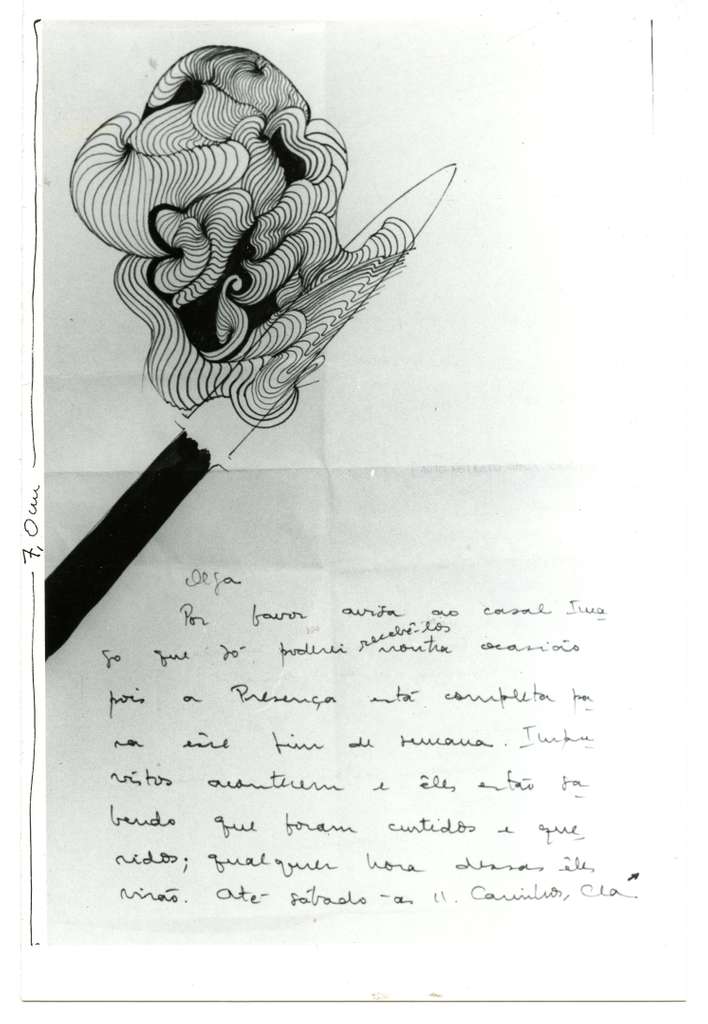 7,0 cm
Olga
Por favor avisa ao casal Ima
go que só poderei recebê-los noutra ocasião
pois a Presença está completa pa
ra êsse fim de semana. Impre
vistos acontecem e êles estão sa
bendo que foram curtidos e que
ridos; qualquer hora dessas êles
virão. Até sábado - as 11. Carinhos, Cla